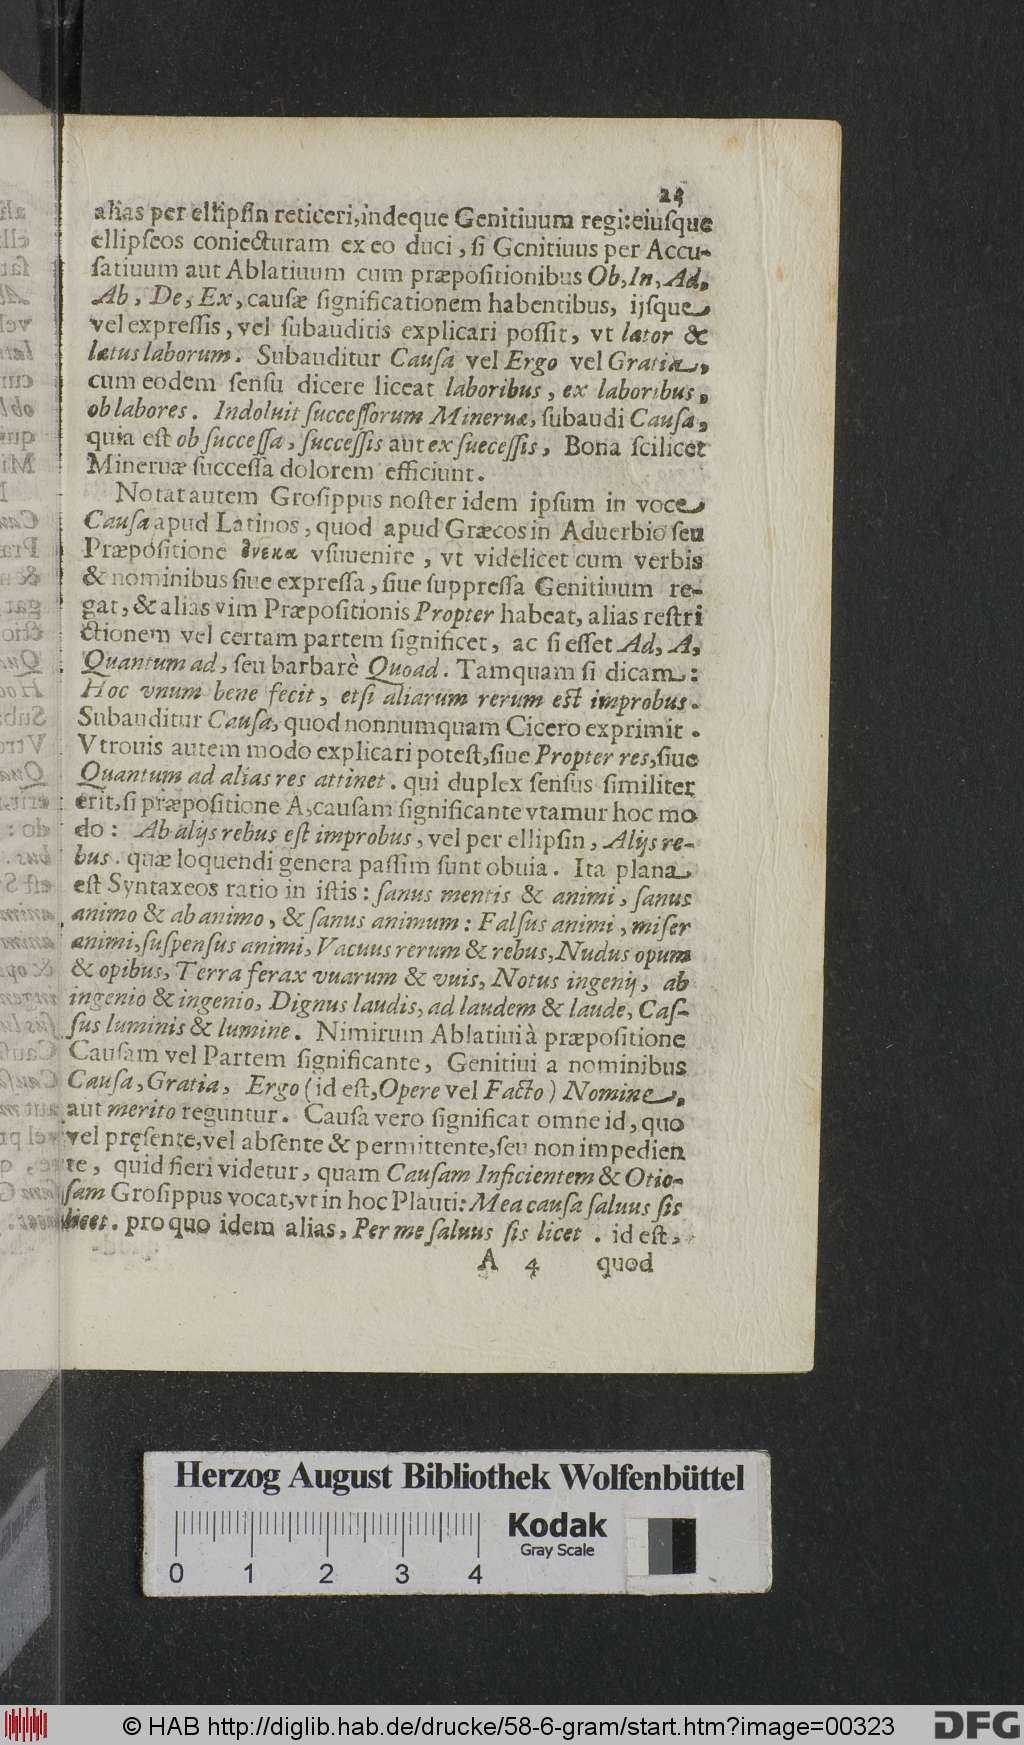 23
alias per ellipſin reticeri, indeque Genitiuum regi: eiuſque
ellipſeos coniecturam ex eo duci, ſi Genitiuus per Accu-
ſatiuum aut Ablatiuum cum præpoſitionibus Ob, In, Ad,
Ab, De, Ex, cauſæ ſignificationem habentibus, ijſque
vel expreſſis, vel ſubauditis explicari poſſit, vt lætor &
lætus laborum. Subauditur Cauſa vel Ergo vel Gratia,
cum eodem ſenſu dicere liceat laboribus, ex laboribus,
ob labores. Indoluit ſucceſſorum Mineruæ, ſubaudi Cauſa,
quia eſt ob ſucceſſa, ſucceſſis aut ex ſueceſſis, Bona ſcilicet
Mineruæ ſucceſſa dolorem efficiunt.
Notat autem Groſippus noſter idem ipſum in voce
Cauſa apud Latinos, quod apud Græcos in Aduerbio ſeu
Præpoſitione ἕνεκα vſuuenire, vt videlicet cum verbis
& nominibus ſiue expreſſa, ſiue ſuppreſſa Genitiuum re-
gat, & alias vim Præpoſitionis Propter habeat, alias reſtri
ctionem vel certam partem ſignificet, ac ſi eſſet Ad, A,
Quantum ad, ſeu barbarè Quoad. Tamquam ſi dicam:
Hoc vnum bene fecit, etſi aliarum rerum eſt improbus.
Subauditur Cauſa, quod nonnumquam Cicero exprimit.
Vtrouis autem modo explicari poteſt, ſiue Propter res, ſiue
Quantum ad alias res attinet. qui duplex ſenſus ſimiliter
erit, ſi præpoſitione A, cauſam ſignificante vtamur hoc mo
do: Ab alijs rebus eſt improbus, vel per ellipſin, Alijs re-
bus. quæ loquendi genera paſſim ſunt obuia. Ita plana
eſt Syntaxeos ratio in iſtis: ſanus mentis & animi, ſanus
animo & ab animo, & ſanus animum: Falſus animi, miſer
animi, ſuſpenſus animi, Vacuus rerum & rebus, Nudus opum
& opibus, Terra ferax vuarum & vuis, Notus ingenij, ab
ingenio & ingenio, Dignus laudis, ad laudem & laude, Caſ-
ſus luminis & lumine. Nimirum Ablatiui à præpoſitione
Cauſam vel Partem ſignificante, Genitiui a nominibus
Cauſa, Gratia, Ergo (id eſt, Opere vel Facto) Nomine,
aut merito reguntur. Cauſa vero ſignificat omne id, quo
vel pręſente, vel abſente & permittente, ſeu non impedien
te, quid fieri videtur, quam Cauſam Inficientem & Otio-
ſam Groſippus vocat, vt in hoc Plauti: Mea cauſa ſaluus ſis
licet. pro quo idem alias, Per me ſaluus ſis licet. id eſt,
A 4 quod
Herzog August Bibliothek Wolfenbüttel
Kodak
Gray Scale
0 1 2 3 4
© HAB http://diglib.hab.de/drucke/58-6-gram/start.htm?image=00323
DFG